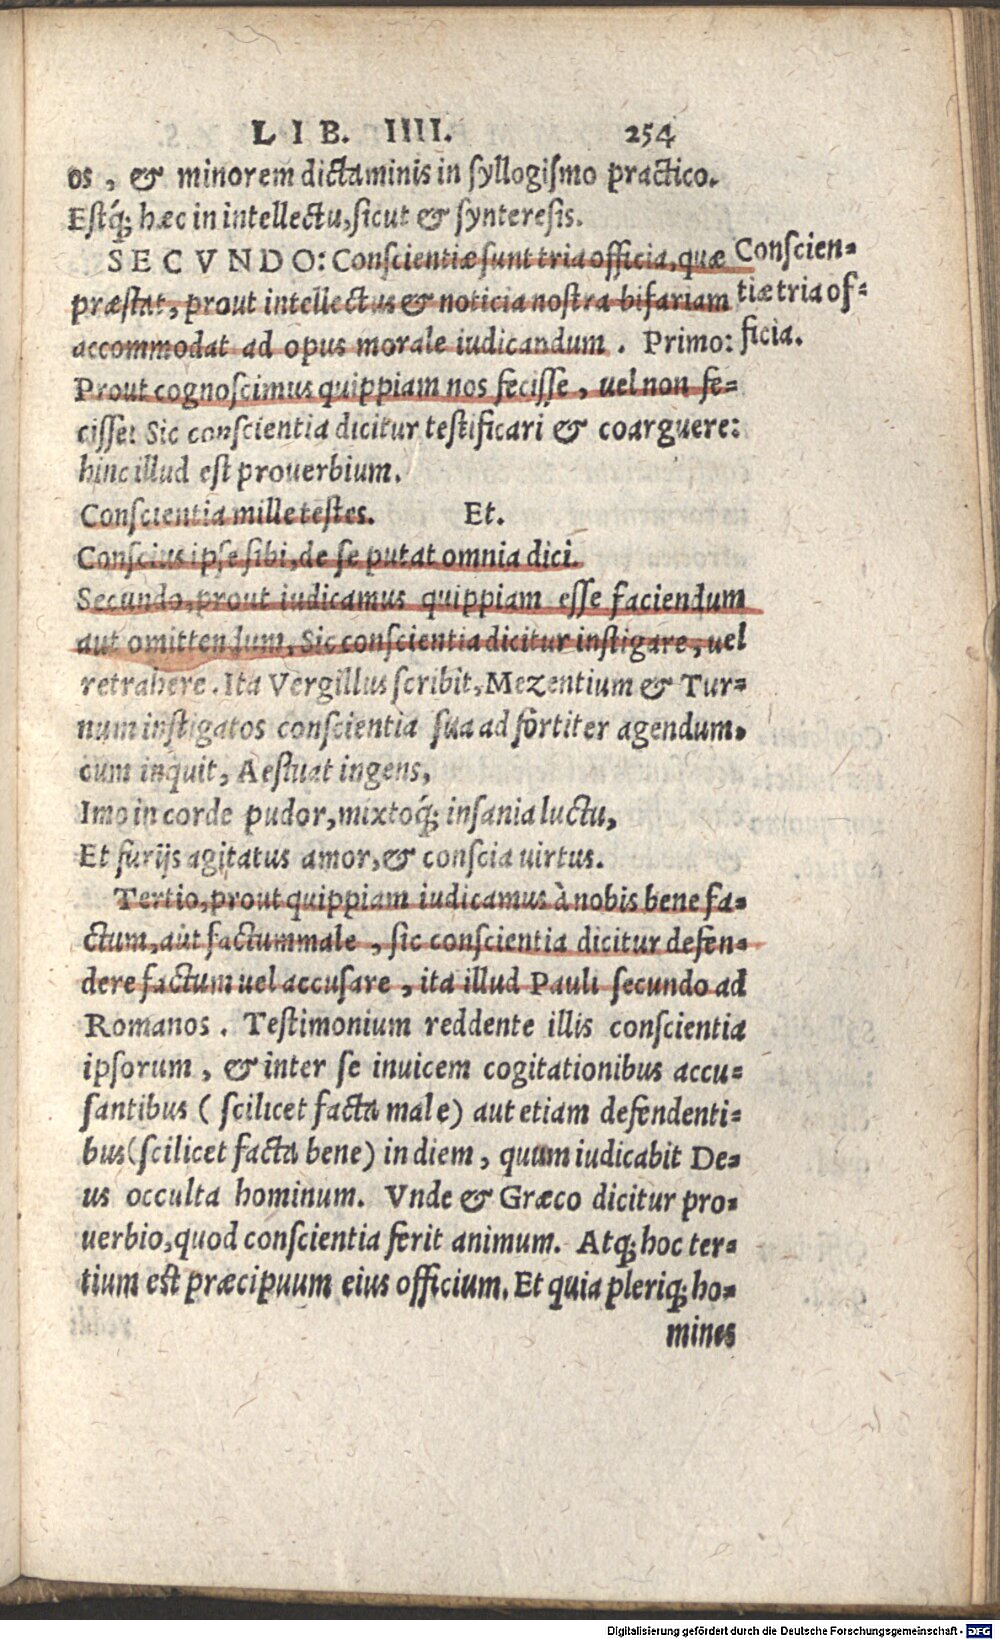 LIB. IIII. 254
os, & minorem dictaminis in syllogismo practico.
Estq́; hæc in intellectu, sicut & synteresis.
SECVNDO: Conscientiæ sunt tria officia, quæ
præstat, prout intellectus & noticia nostra bifariam
accommodat ad opus morale iudicandum. Primo:
Prout cognoscimus quippiam nos fecisse, uel non fe-
cisse: Sic conscientia dicitur testificari & coarguere:
hinc illud est prouerbium.
Conscientia mille testes. Et.
Conscius ipse sibi, de se putat omnia dici.
Secundo, prout iudicamus quippiam esse faciendum
aut omittendum, Sic conscientia dicitur instigare, uel
retrahere. Ita Vergilius scribit, Mezentium & Tur-
num instigatos conscientia sua ad fortiter agendum.
cum inquit, Aestuat ingens,
Imo in corde pudor, mixtoq́; insania luctu,
Et furijs agitatus amor, & conscia uirtus.
Tertio, prout quippiam iudicamus à nobis bene fa-
ctum, aut factum male, sic conscientia dicitur defen-
dere factum uel accusare, ita illud Pauli secundo ad
Romanos. Testimonium reddente illis conscientia
ipsorum, & inter se inuicem cogitationibus accu-
santibus (scilicet facta male) aut etiam defendenti-
bus (scilicet facta bene) in diem, quum iudicabit De-
us occulta hominum. Vnde & Græco dicitur pro-
uerbio, quod conscientia ferit animum. Atq; hoc ter-
tium est præcipuum eius officium. Et quia pleriq; ho-
mines
Conscien-
tiæ tria of-
ficia.
Digitalisierung gefördert durch die Deutsche Forschungsgemeinschaft - DFG